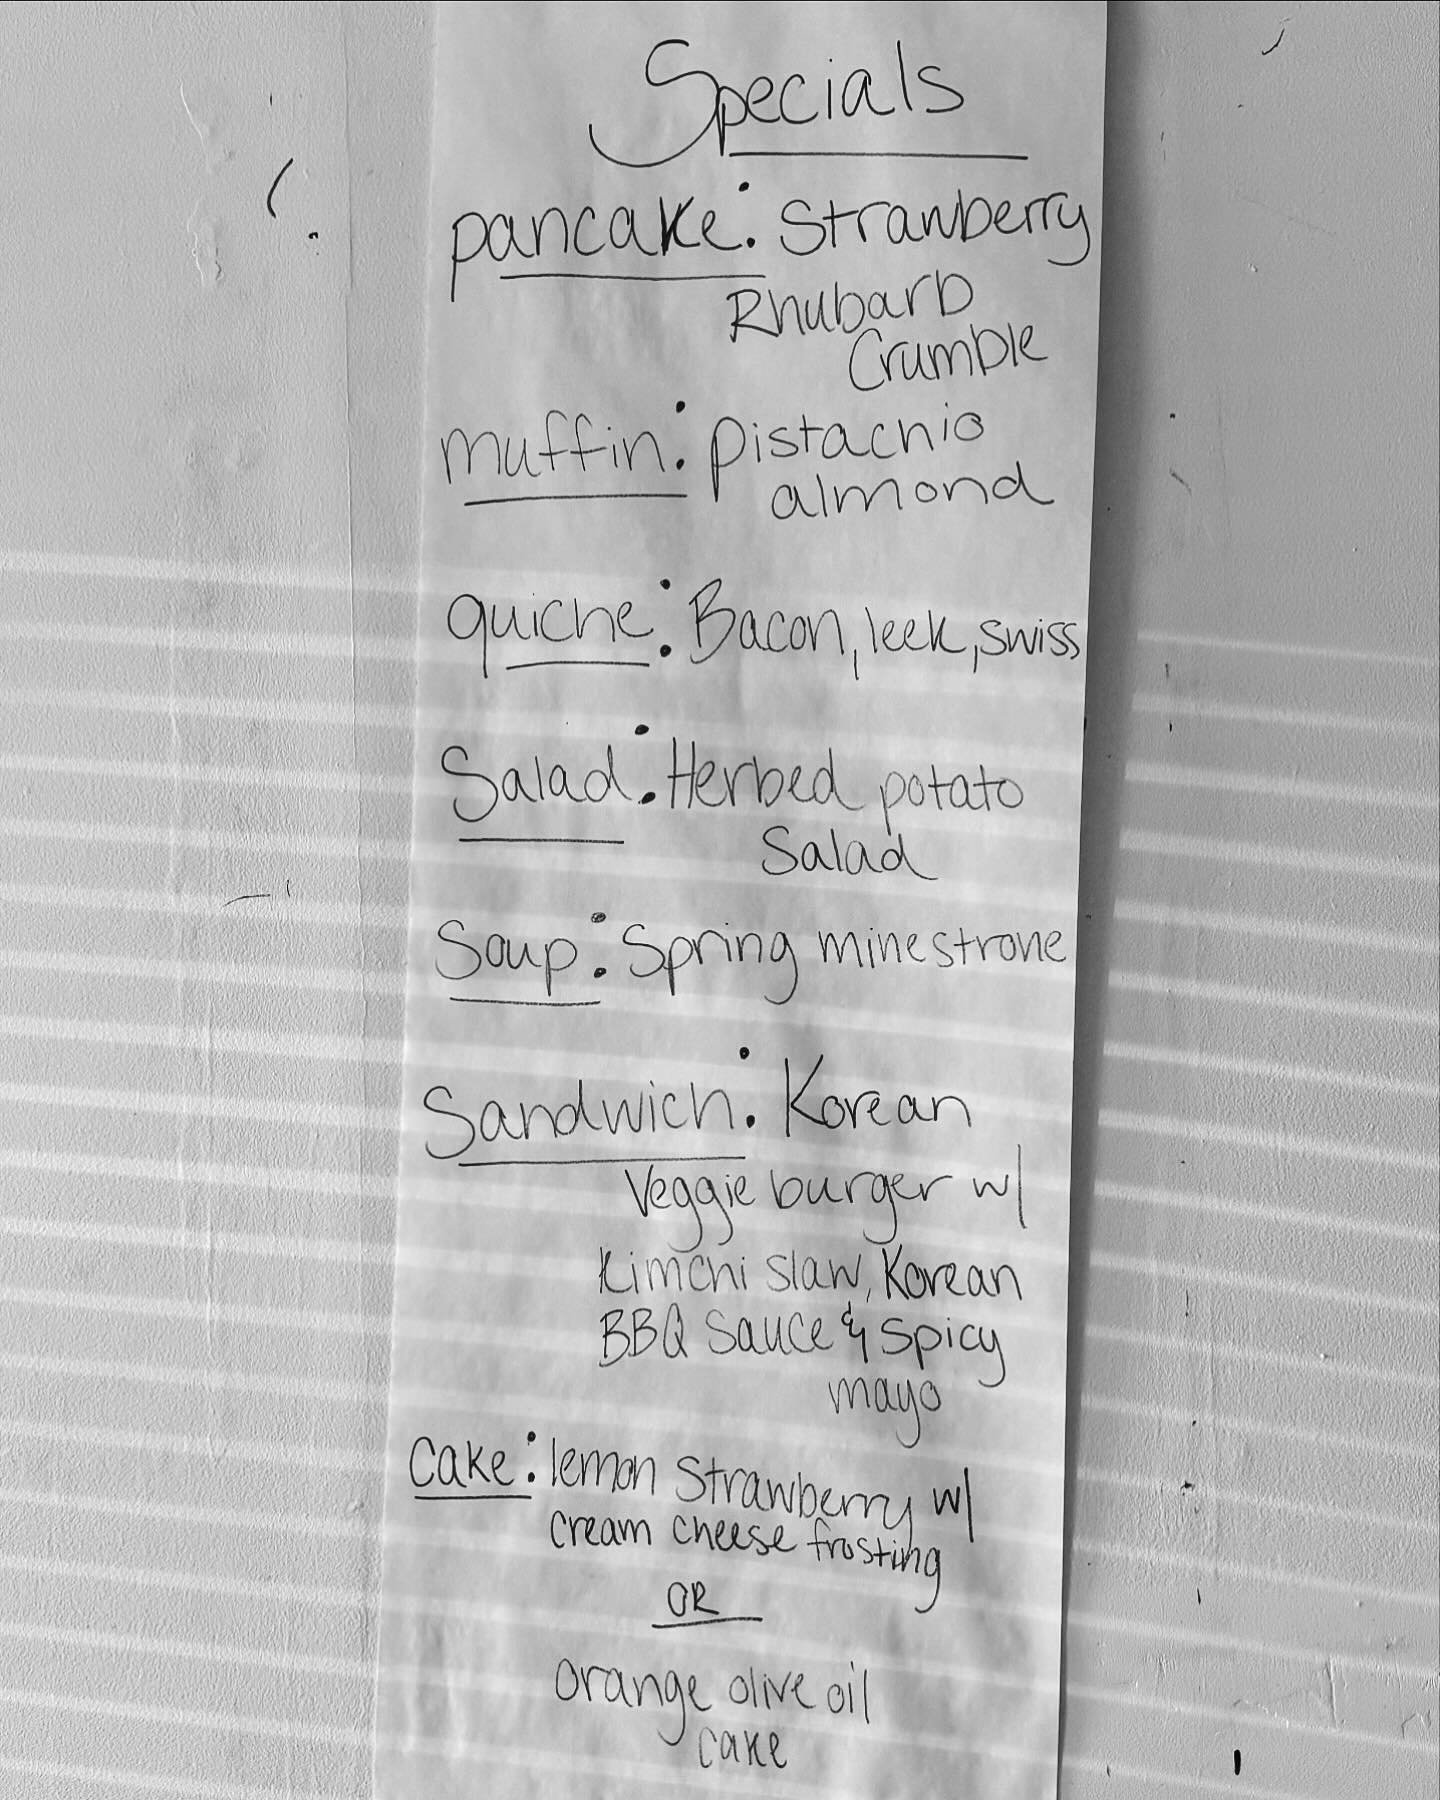 Specials
pancake: Strawberry
Rhubarb
Crumble
muffin: pistachio
almond
quiche: Bacon, leek, swiss
Salad: Herbed potato
Salad
Soup: Spring minestrone
Sandwich: Korean
Veggie burger w/
Kimchi slaw, Korean
BBQ Sauce & Spicy
mayo
Cake: lemon Strawberry w/
cream cheese frosting
OR
orange olive oil
cake